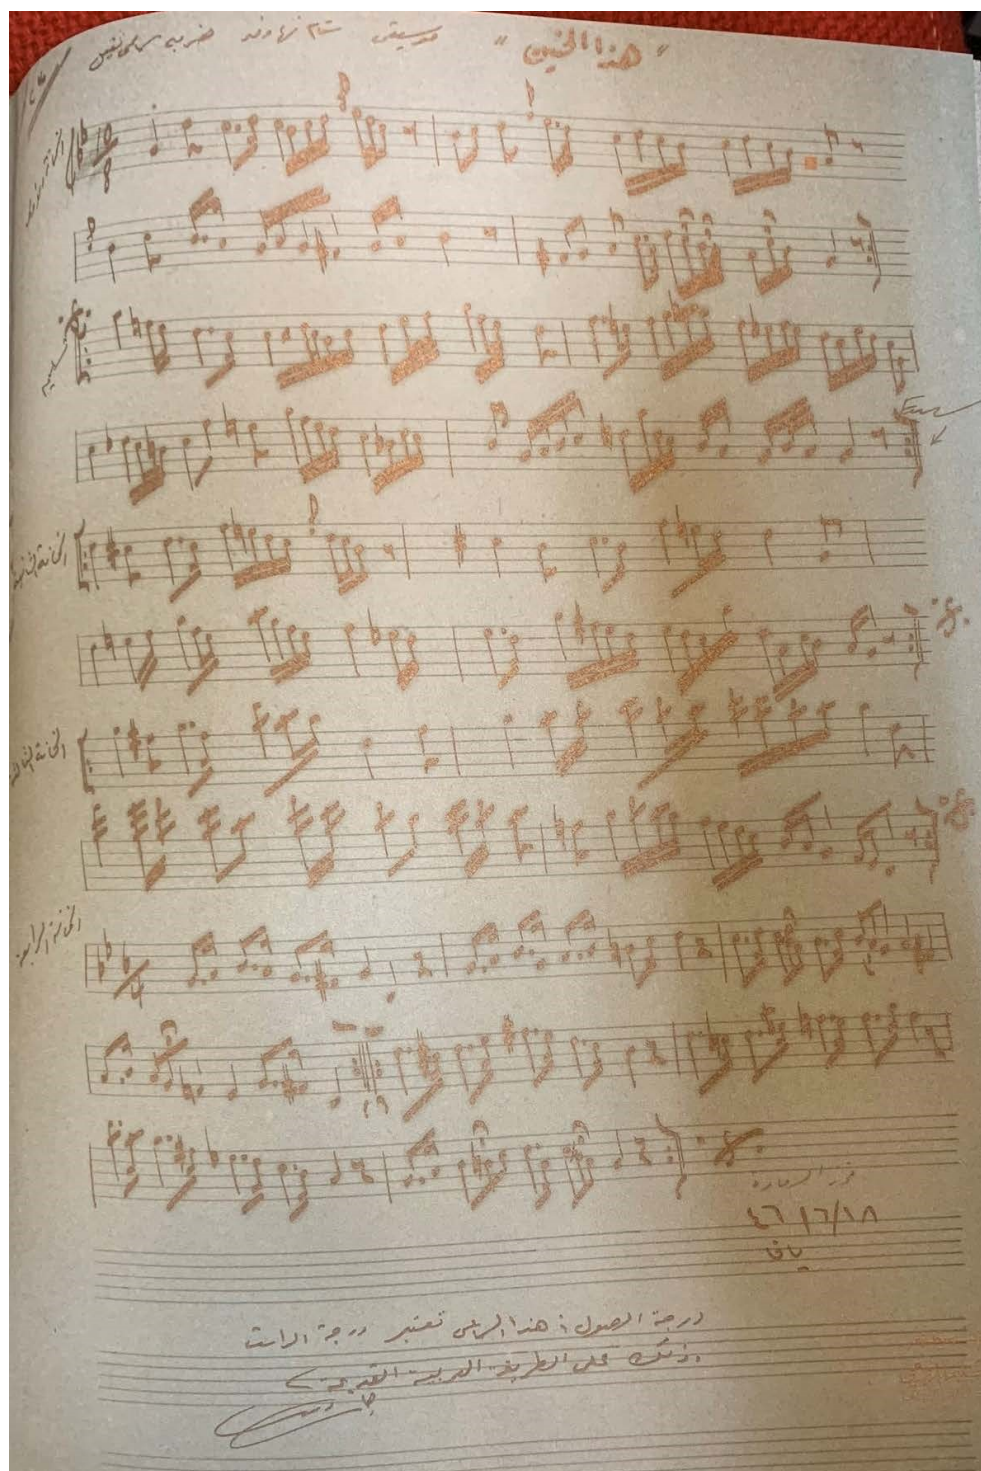 "هذا الحنين" موسيقى مقام نهاوند ضربه سماعي ثقيل
10
8
الخانة الأولى
تسليم
Fine
الخانة الثانية
الخانة الثالثة
الخانة الرابعة
١٨/٦/٤٦
يافا
درجة الصول في هذا السماعي تعتبر درجة الراست
وذلك على الطريقة العربية القديمة